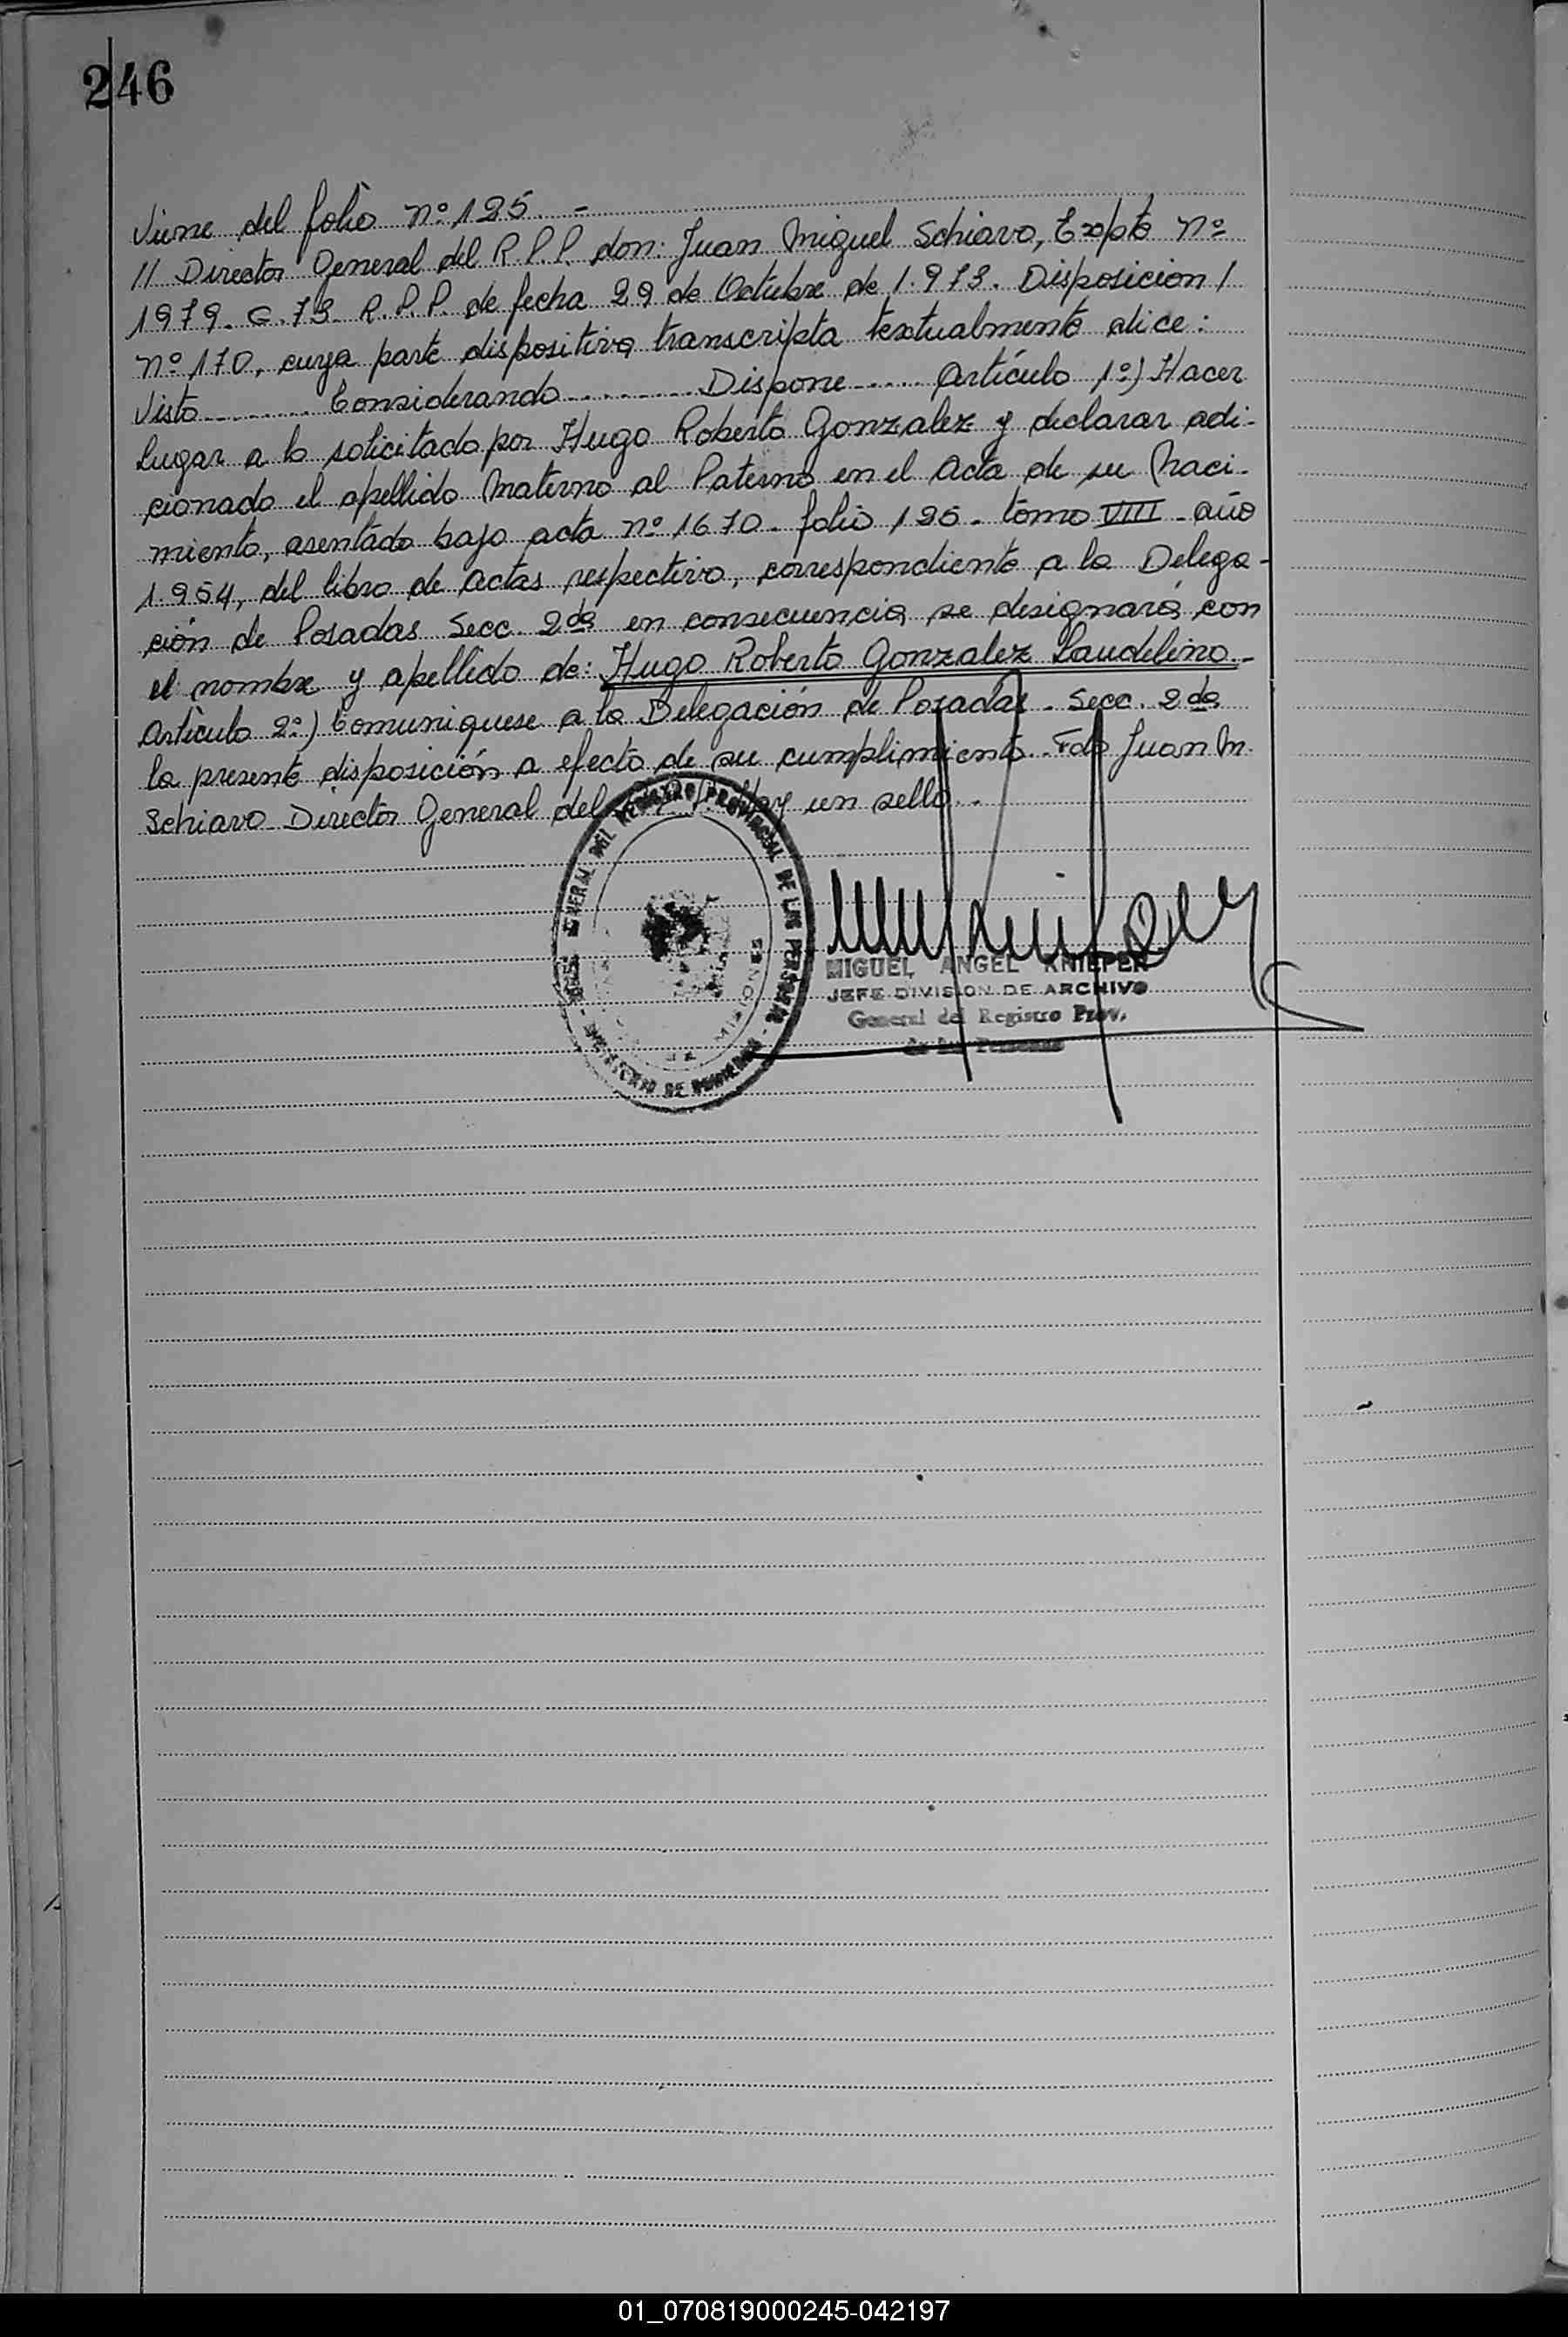 246
Viene del folio nº 125. -
// Director General del R.P.P. don: Juan Miguel Schiavo, Expte nº
1979. G. 73. R.P.P. de fecha 29 de Octubre de 1.973. Disposicion /
nº 170, cuya parte dispositiva transcripta textualmente dice:
Visto ........ Considerando ......... Dispone ..... Artículo 1º) Hacer
lugar a lo solicitado por Hugo Roberto Gonzalez y declarar adi-
cionado el apellido Materno al Paterno en el Acta de su Naci-
miento, asentado bajo acta nº 1670. folio 125. tomo VIII - año
1.954, del libro de Actas respectivo, correspondiente a la Delega-
ción de Posadas Secc. 2da en consecuencia se designará con
el nombre y apellido de: Hugo Roberto Gonzalez Laudelino.-
Artículo 2º) Comuniquese a la Delegación de Posadas - Secc. 2da
la presente disposición a efecto de su cumplimiento. Fdo Juan M.
Schiavo Director General del R.P.P. Hay un sello. -
GENERAL DEL REGISTRO PROVINCIAL DE LAS PERSONAS
MISIONES
MINISTERIO DE GOBIERNO
MIGUEL ANGEL KNIEPER
JEFE DIVISION DE ARCHIVO
General del Registro Prov.
de las Personas
01_070819000245-042197